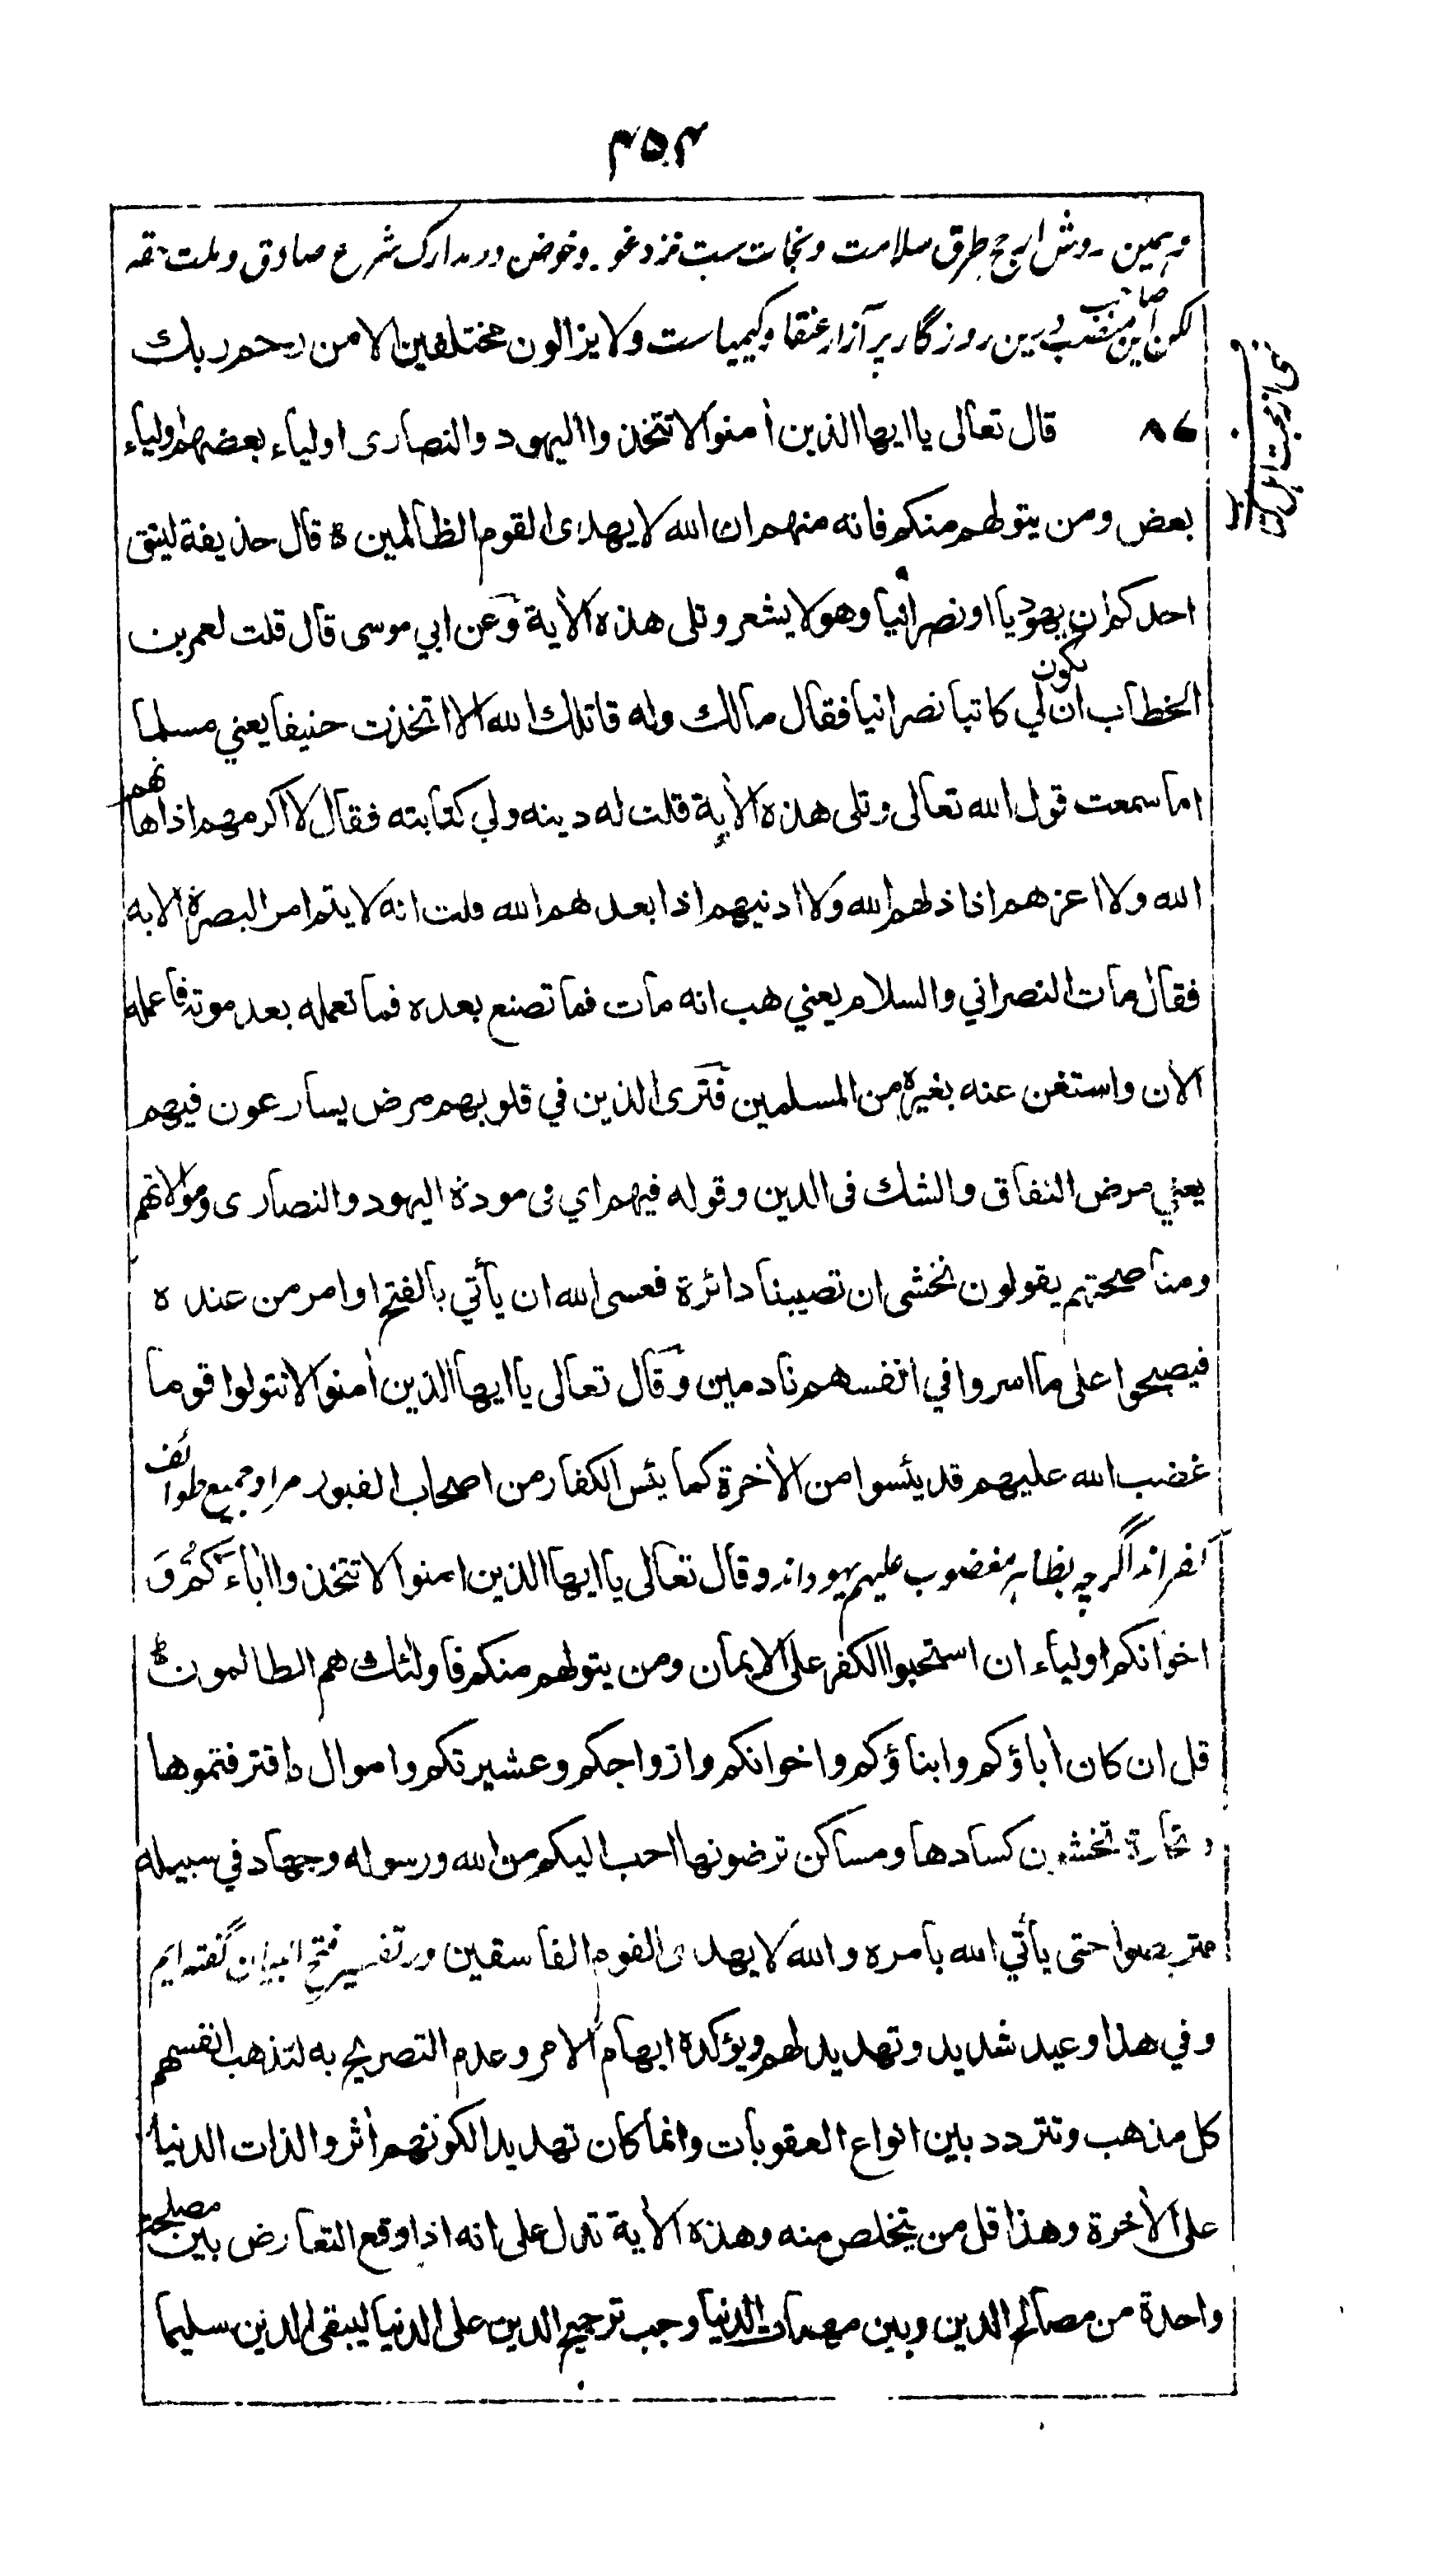 ۴۵۴
وہمین روش ارجح طرق سلامت ونجات ست نزد غور وخوض در مدارک شرع صادق وملت حقہ
لکن این منصب درین روزگار پر آزار عنقا وکیمیاست ولا یزالون مختلفین الا من رحم ربك
نہی از محبت اہل کتاب
۸۷ قال تعالى يا ايها الذين أمنوا لا تتخذوا اليهود والنصارى اولياء بعضهم اولياء
بعض ومن يتولهم منكم فانه منهم ان الله لا يهدى القوم الظالمين ه قال حذيفة ليتق
احدكم ان يكون يهوديا او نصرانيا وهو لا يشعر وتلى هذه الأية وعن ابي موسى قال قلت لعمر بن
الخطاب ان لي كاتبا نصرانيا فقال مالك وله قاتلك الله الا اتخذت حنيفا يعني مسلما
اما سمعت قول الله تعالى وتلى هذه الأية قلت له دينه ولي كتابته فقال لا اكرمهم اذا هانهم
الله ولا اعزهم اذا ذلهم الله ولا ادنيهم اذا بعدهم الله قلت انه لا يتم امر البصرة الا به
فقال مات النصراني والسلام يعني هب انه مات فما تصنع بعده فما تعمله بعد موته فاعمله
الأن واستغن عنه بغيره من المسلمين فترى الذين في قلوبهم مرض يسارعون فيهم
يعني مرض النفاق والشك فى الدين وقوله فيهم اي فى مودة اليهود والنصارى وموالاتهم
ومناصحتهم يقولون نخشى ان تصيبنا دائرة فعسى الله ان يأتي بالفتح او امر من عنده
فيصبحوا على ما اسروا في انفسهم نادمين وقال تعالى يا ايها الذين أمنوا لا تتولوا قوما
غضب الله عليهم قد يئسوا من الأخرة كما يئس الكفار من اصحاب القبور مراد جمیع طوائف
کفراند اگرچہ بظاہر مغضوب علیہم یہوداند وقال تعالى يا ايها الذين امنوا لا تتخذوا أباءَكُمْ وَ
اخوانكم اولياء ان استحبوا الكفر على الايمان ومن يتولهم منكم فاولئك هم الظالمون
قل ان كان أباؤكم وابناؤكم واخوانكم وازواجكم وعشيرتكم واموال ن اقترفتموها
وتجارة تخشون كسادها ومساكن ترضونها احب اليكم من الله ورسوله وجهاد في سبيله
فتربصوا حتى يأتي الله بامره والله لا يهدى القوم الفاسقين در تفسیر فتح البیان گفتہ ایم
وفي هذا وعيد شديد وتهديد لهم ويؤكده ابهام الامر وعدم التصريح به لتذهب انفسهم
كل مذهب وتتردد بين انواع العقوبات وانما كان تهديدا لكونهم أثروا لذات الدنيا
على الأخرة وهذا قل من يتخلص منه وهذه الأية تدل على انه اذا وقع التعارض بين مصلحة
واحدة من مصالح الدين وبين مهمات الدنيا وجب ترجيح الدين على الدنيا ليبقى الدين سليما